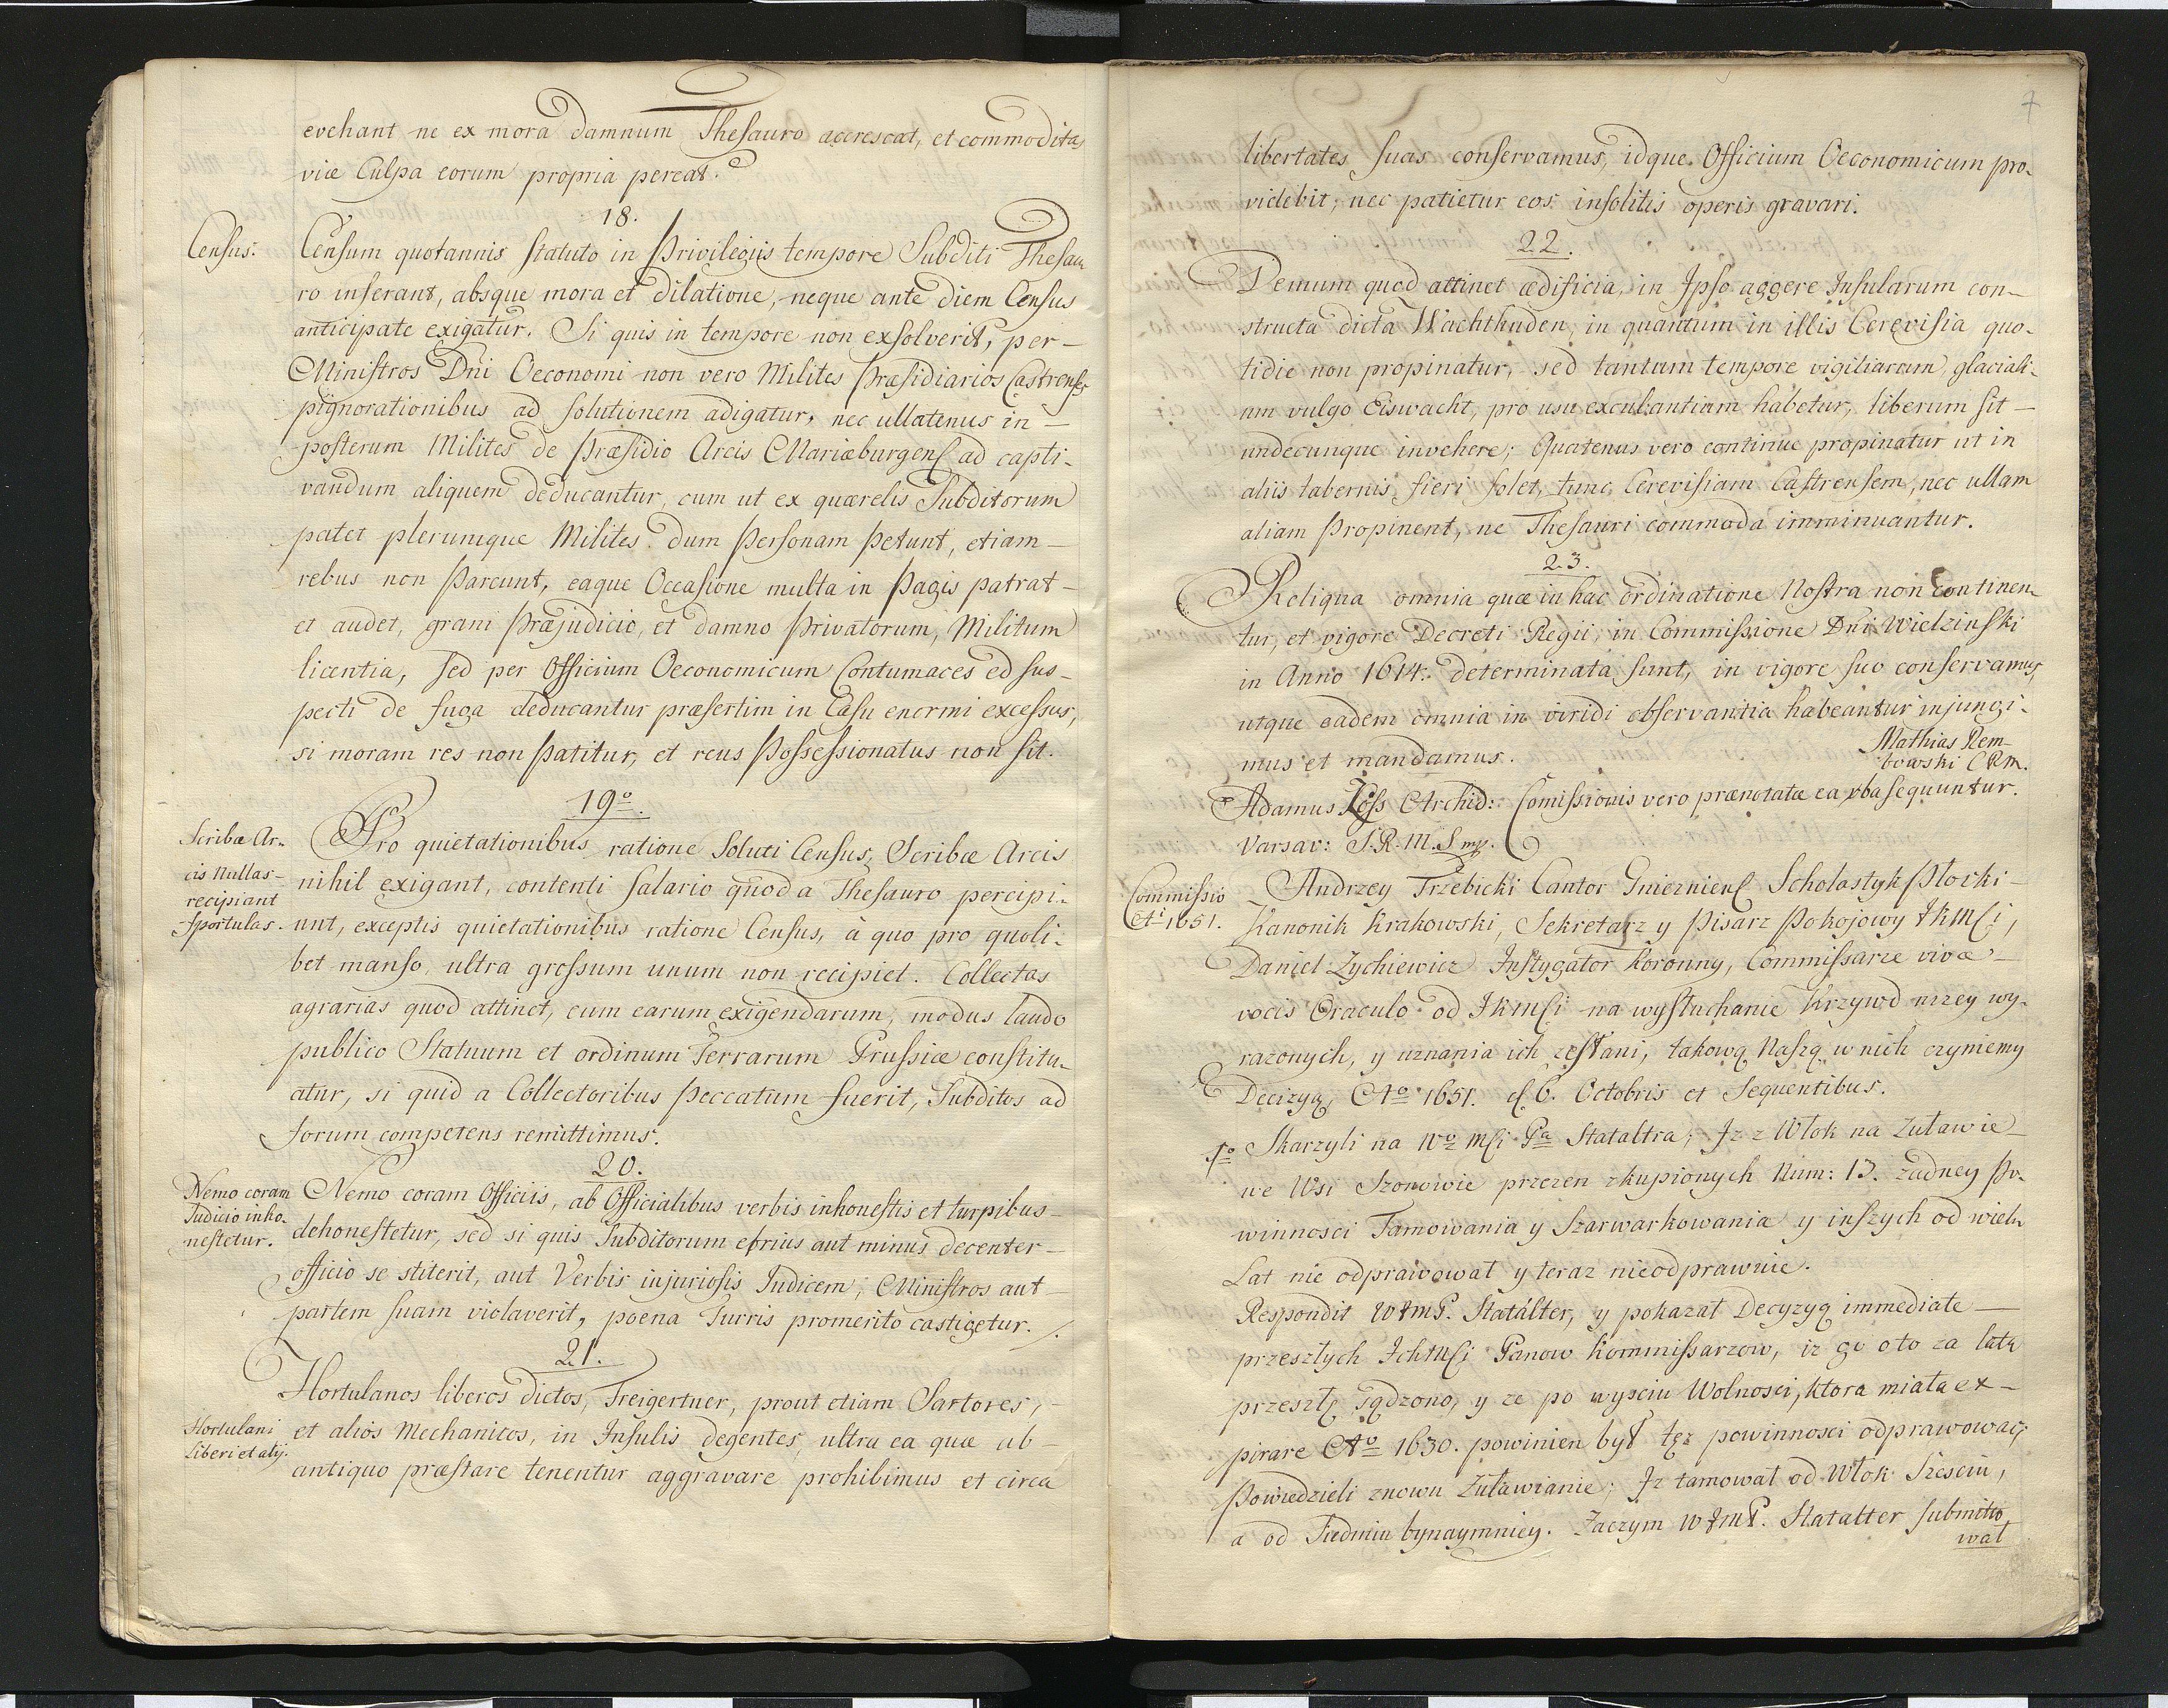 evehant ne ex mora damnum Thesauro accrescat, et commoditas
viæ Culpa eorum propria pereat.
18.
Census.
Censum quotannis statuto in Privilegiis tempore Subditi Thesau
ro inferant, absque mora et dilatione, neque ante diem Census
anticipate exigatur. Si quis in tempore non exsolverit, per-
Ministros Dni Oeconomi non vero Milites Præsidiarios Castrenses
pignorationibus ad solutionem adigatur, nec ullatenus in-
posterum Milites de Præsidio Arcis Mariæburgens ad capti-
vandum aliquem deducantur, cum ut ex quærelis Subditorum
patet plerumque Milites dum Personam petunt, etiam-
rebus non Parcunt, eaque Occasione multa in Pagis patrat-
et audet, grani Præjudicio, et damno Privatorum, Militum
licentia, sed per Officium Oeconomicum Contumaces ed sus-
pecti de fuga deducantur præsertim in Casu enormi excessus,
si moram res non Patitur, et reus Possessionatus non sit.
19o.
Scribæ Ar-
cis Nullas-
recipiant
Sportulas.
Pro quietationibus ratione Soluti Census, Scribæ Arcis
nihil exigant, contenti Salario quod a Thesauro percipi-
unt, exceptis quietationibus ratione Census, à quo pro quoli-
bet manso, ultra grossum unum non recipiet. Collectas
agrarias quod attinet, cum earum exigendarum, modus laudo
publico Statuum et ordinum Terrarum Prussiæ constitu-
atur, si quid a Collectoribus Peccatum fuerit, Subditos ad
forum competens remittimus.
20.
Nemo coram
Judicio inho-
nestetur.
Nemo coram Officiis, ab Officialibus verbis inhonestis et turpibus-
dehonestetur, sed si quis Subditorum ebrius aut minus decenter-
officio se stiterit, aut Verbis injuriosis Judicem, Ministros aut
partem suam violaverit, poena Turris promerito castigetur. /.
21.
Hortulani
Liberi et alij.
Hortulanos liberos dictos, Freigertner, prout etiam Sartores,-
et alios Mechanicos, in Insulis degentes, ultra ea quæ ab-
antiquo præstare tenentur aggravare prohibimus et circa
7
libertates suas conservamus, idque Officium Oeconomicum pro-
videbit, nec patietur eos insolitis operis gravari.
22.
Demum quod attinet ædificia, in Ipso aggere Insularum con-
structa dicta Wachthuden, in quantum in illis Cerevisia quo-
tidie non propinatur, sed tantum tempore vigiliarum, glaciali-
um vulgo Eiswacht, pro usu excubantium habetur, liberum sit-
undecunque invehere; Quatenus vero continue propinatur ut in
aliis tabernis fieri solet, tunc Cerevisiam Castrensem, nec ullam
aliam Propinent, ne Thesauri commoda imminuantur.
23.
Reliqua omnia quæ in hac ordinatione Nostra non continen-
tur, et vigore Decreti Regii, in Commissione Dni Wielzinski
in Anno 1614. determinata sunt, in vigore suo conservamus,
utque eadem omnia in viridi observantia habeantur injungi-
mus et mandamus.
Mathias Rem-
bowski CRM.
Adamus Koss Archid: Comissionis vero prænotatæ ea vba sequuntur.
Varsav: S.R.M.S mp.
Commissio
Ai 1651.
Andrzey Trzebicki Cantor Gniezniens Scholastyk Plocki-
Kanonik Krakowski, Sekretarz y Pisarz Pokojowy JKMsci,
Daniel Zychiewicz Instygator Koronny, Commissarze vivæ-
vocis Oraculo od JKMsci na wysłuchanie Krzywd nizey wy-
razonych, y uznania ich zesłani, takową Naszą w nich czyniemy
Decizyą, Ao 1651. d. 6. Octobris et Sequentibus.
1o
Skarzyli na Wo Msci Pa Statałtra, Iz z Włok na Zuławie-
we Wsi Szonowie przezen zkupionych Num: 13. zadney Po-
winnosci Tamowania y Szarwarkowania y inszych od wielu
Lat nie odprawował y teraz nieodprawuie.
Respondit WJMP. Statálter, y pokazał Decyzyą immediate-
przeszłych IchMsci Panow Kommissarzow, iz go o to za lata
przeszłe sądzono, y ze po wysciu Wolnosci, ktora miała ex-
pirare Ao 1630. powinien był tęz powinnosci odprawować,
Powiedzieli znowu Zuławianie; Iz tamował od Włok Szesciu,
a od Siedmiu bynaymniey. Zaczym WJMP. Statalter submitto
wał